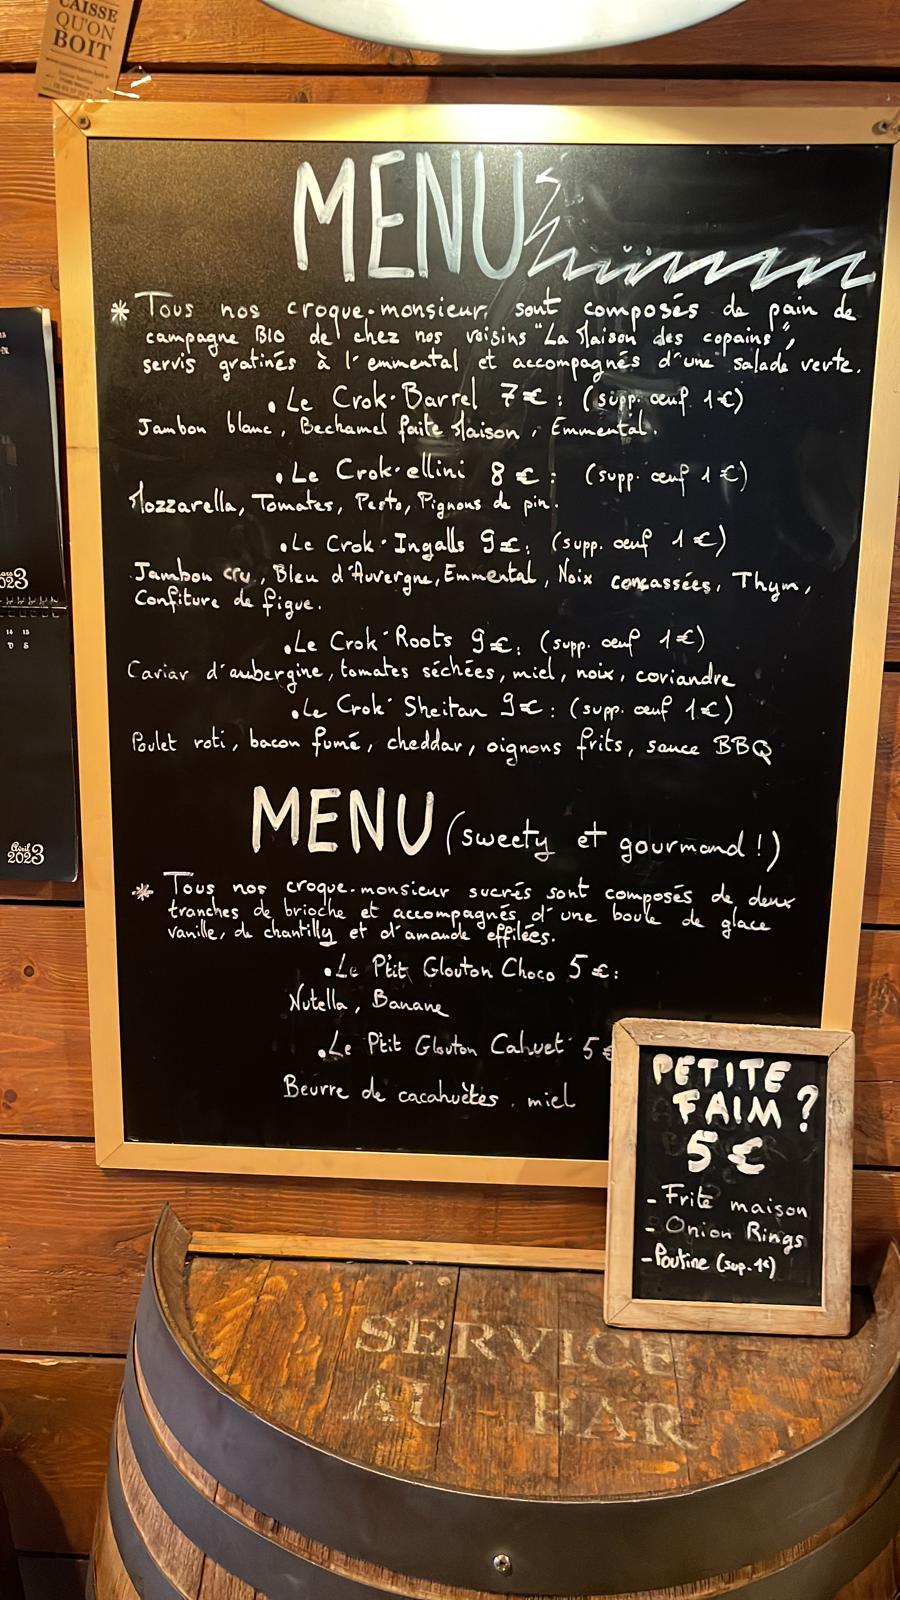 CAISSE
QU'ON
BOIT
MENU
* Tous nos croque-monsieur, sont composés de pain de
campagne BIO de chez nos voisins "La Maison des copains",
servis gratinés à l'emmental et accompagnés d'une salade verte.
• Le Crok·Barrel 7€ : (supp. œuf 1€)
Jambon blanc, Bechamel faite Maison, Emmental.
• Le Crok·ellini 8€ : (supp. œuf 1€)
Mozzarella, Tomates, Pesto, Pignons de pin.
• Le Crok·Ingalls 9€ : (supp. œuf 1€)
Jambon cru, Bleu d'Auvergne, Emmental, Noix concassées, Thym,
Confiture de figue.
• Le Crok'Roots 9€ : (supp. œuf 1€)
Caviar d'aubergine, tomates séchées, miel, noix, coriandre
• Le Crok' Sheitan 9€ : (supp. œuf 1€)
Poulet roti, bacon fumé, cheddar, oignons frits, sauce BBQ
MENU (sweety et gourmand !)
* Tous nos croque-monsieur sucrés sont composés de deux
tranches de brioche et accompagnés d'une boule de glace
vanille, de chantilly et d'amande effilées.
• Le P'tit Glouton Choco 5€ :
Nutella, Banane
• Le P'tit Glouton Cahuet' 5€
Beurre de cacahuètes, miel
PETITE
FAIM ?
5€
- Frite maison
- Onion Rings
- Poutine (sup. 1€)
SERVICE
AU BAR
2023
14 15
Avril
2023